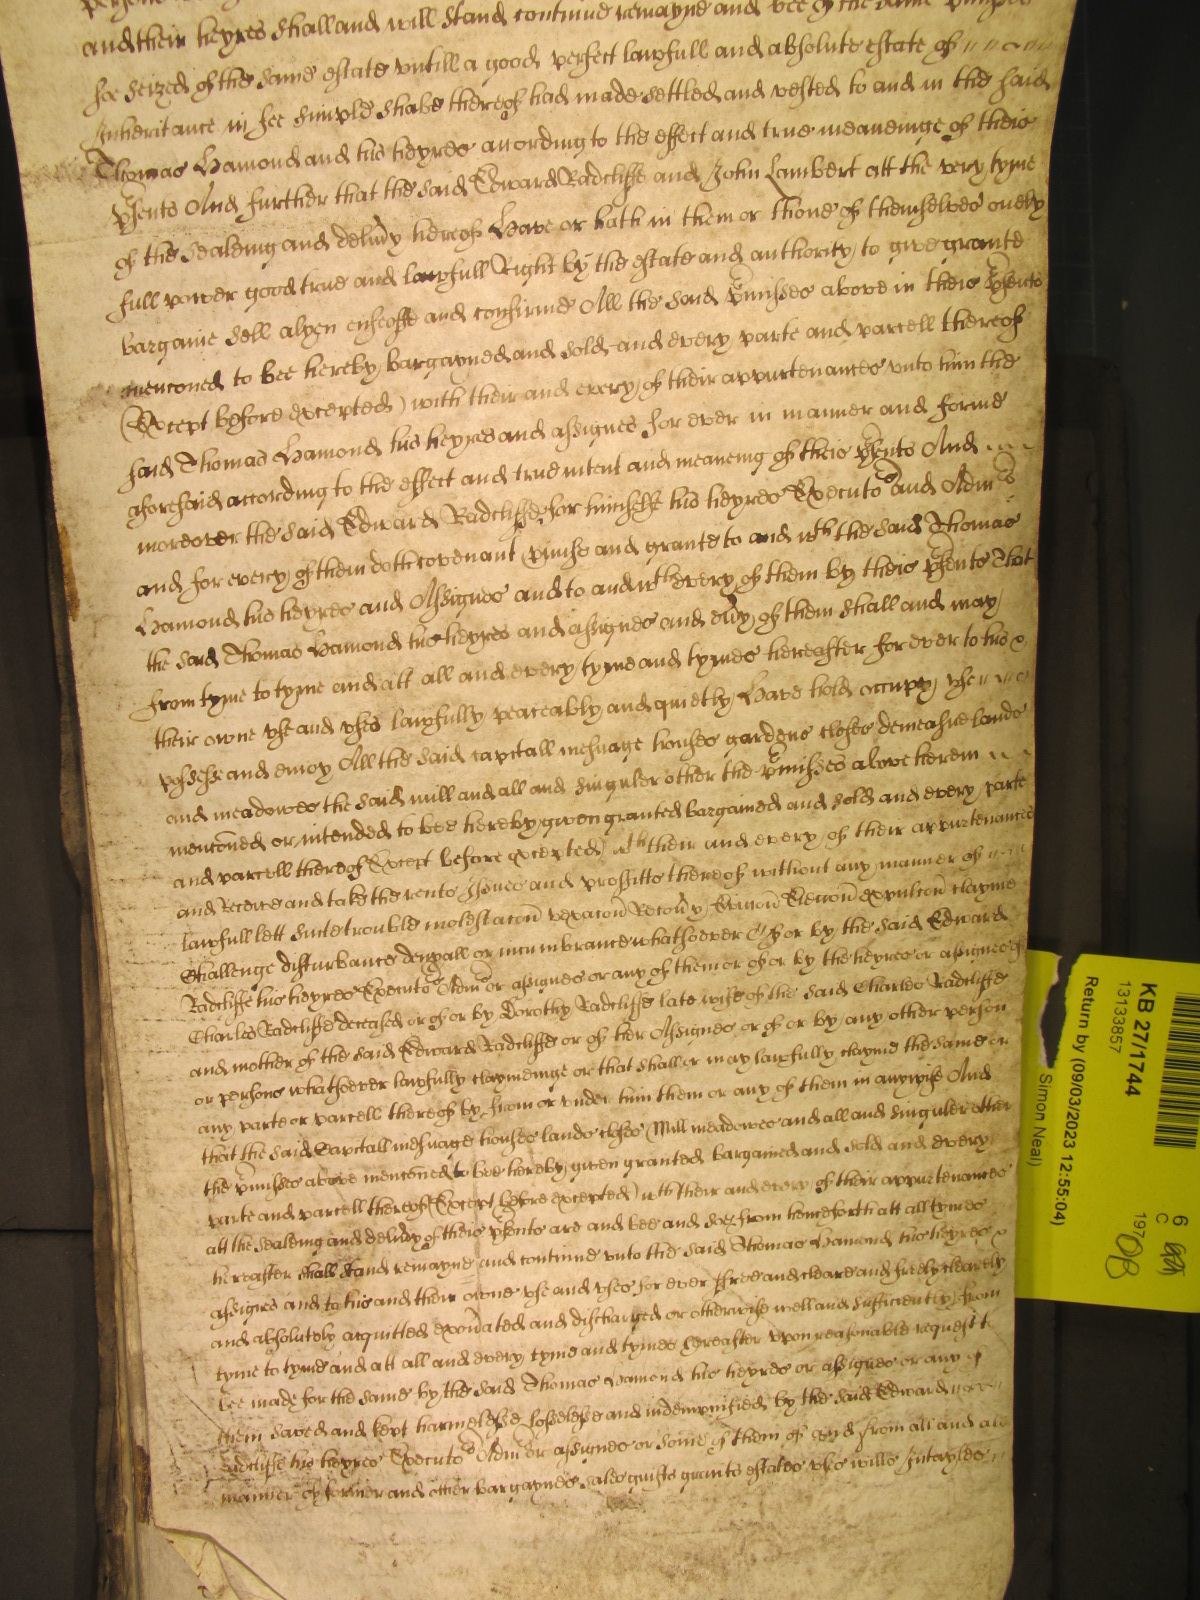 and their heyres shall and will stand continue remayne and bee of the same
see seized of the same estate untill a good perfect lawfull and absolute estate of
Inheritance in fee simple shalbe thereof had made settled and vested to and in the said
Thomas Hamond and his heyres according to the effect and true meaneinge of theis
pſents And further that the said Edward Radcliffe and John Lambert att the very tyme
of the sealeing and delivy hereof Have or hath in them or thone of themselves onely
full power good true and lawfull Right by the estate and authority to give grante
bargaine sell alyen enfeoffe and confirme All the said pmisses above in theis pſents
menconed to bee hereby bargayned and sold and every parte and parcell thereof
(Except before excepted) with their and every of their appurtenances unto him the
said Thomas Hamond his heyres and assignes for ever in manner and forme
aforesaid according to the effect and true intent and meaneing of theis pſents And
moreover the said Edward Radcliffe for himselfe his heyres Executors and Admrs
and for every of them doth covenant pmise and grante to and wth the said Thomas
Hamond his heyres and Assignes and to and wth every of them by theis pſents That
the said Thomas Hamond his heyres and assignes and evy of them shall and may
from tyme to tyme and att all and every tyme and tymes hereafter for ever to his &
their owne use and uses lawfully peaceably and quietly Have hold occupy use
possesse and enioy All the said capitall mesuage houses gardens closes demeasne lands
and meadowes the said mill and all and singuler other the pmisses above herein
menconed or intended to bee hereby given granted bargained and sold and every parte
and parcell thereof (Except before excepted) wth their and every of their appurtenances
and Receive and take the rents Issues and proffitts thereof without any manner of
lawfull lett suite trouble molestacon vexacon Recovy Eviccon Eieccon expulcon clayme
Challenge disturbance denyall or incumbrance whatsoever Of or by the said Edward
Radcliffe his heyres Executors Admrs or assignes or any of them or of or by the heyres or assignes of
Charles Radcliffe deceased or of or by Dorothy Radcliffe late wife of the said Charles Radcliffe
and mother of the said Edward Radcliffe or of her Assignes or of or by any other person
or persons whatsoever lawfully claymeinge or that shall or may lawfully clayme the same or
any parte or parcell thereof by from or under him them or any of them in anywise And
that the said Capitall mesuage houses lands closes Mill meadowes and all and singuler other
the pmisses above menconed to bee hereby given granted bargained and sold and every
parte and parcell thereof (Except before excepted) wth their and every of their appurtenances
att the sealeing and delivy of theis pſents are and bee and soe from henceforth att all tymes
hereafter shall stand remayne and continue unto the said Thomas Hamond his heyres &
assignes and to his and their owne use and uses for ever free and cleare and freely clearely
and absolutely acquitted exonated and discharged or otherwise well and sufficiently from
tyme to tyme and att all and every tyme and tymes hereafter upon reasonable request to
bee made for the same by the said Thomas Hamond his heyres or assignes or any of
them saved and kept harmelesse losselesse and indempnified by the said Edward
Radcliffe his heyres Executors Admrs or assignes or some of them of and from all and all
manner of former and other bargaynes sales guifts grants estates uses wills Intayles
KB 27/1744
13133857
Return by (09/03/2023 12:55:04)
Simon Neal)
6
C
197